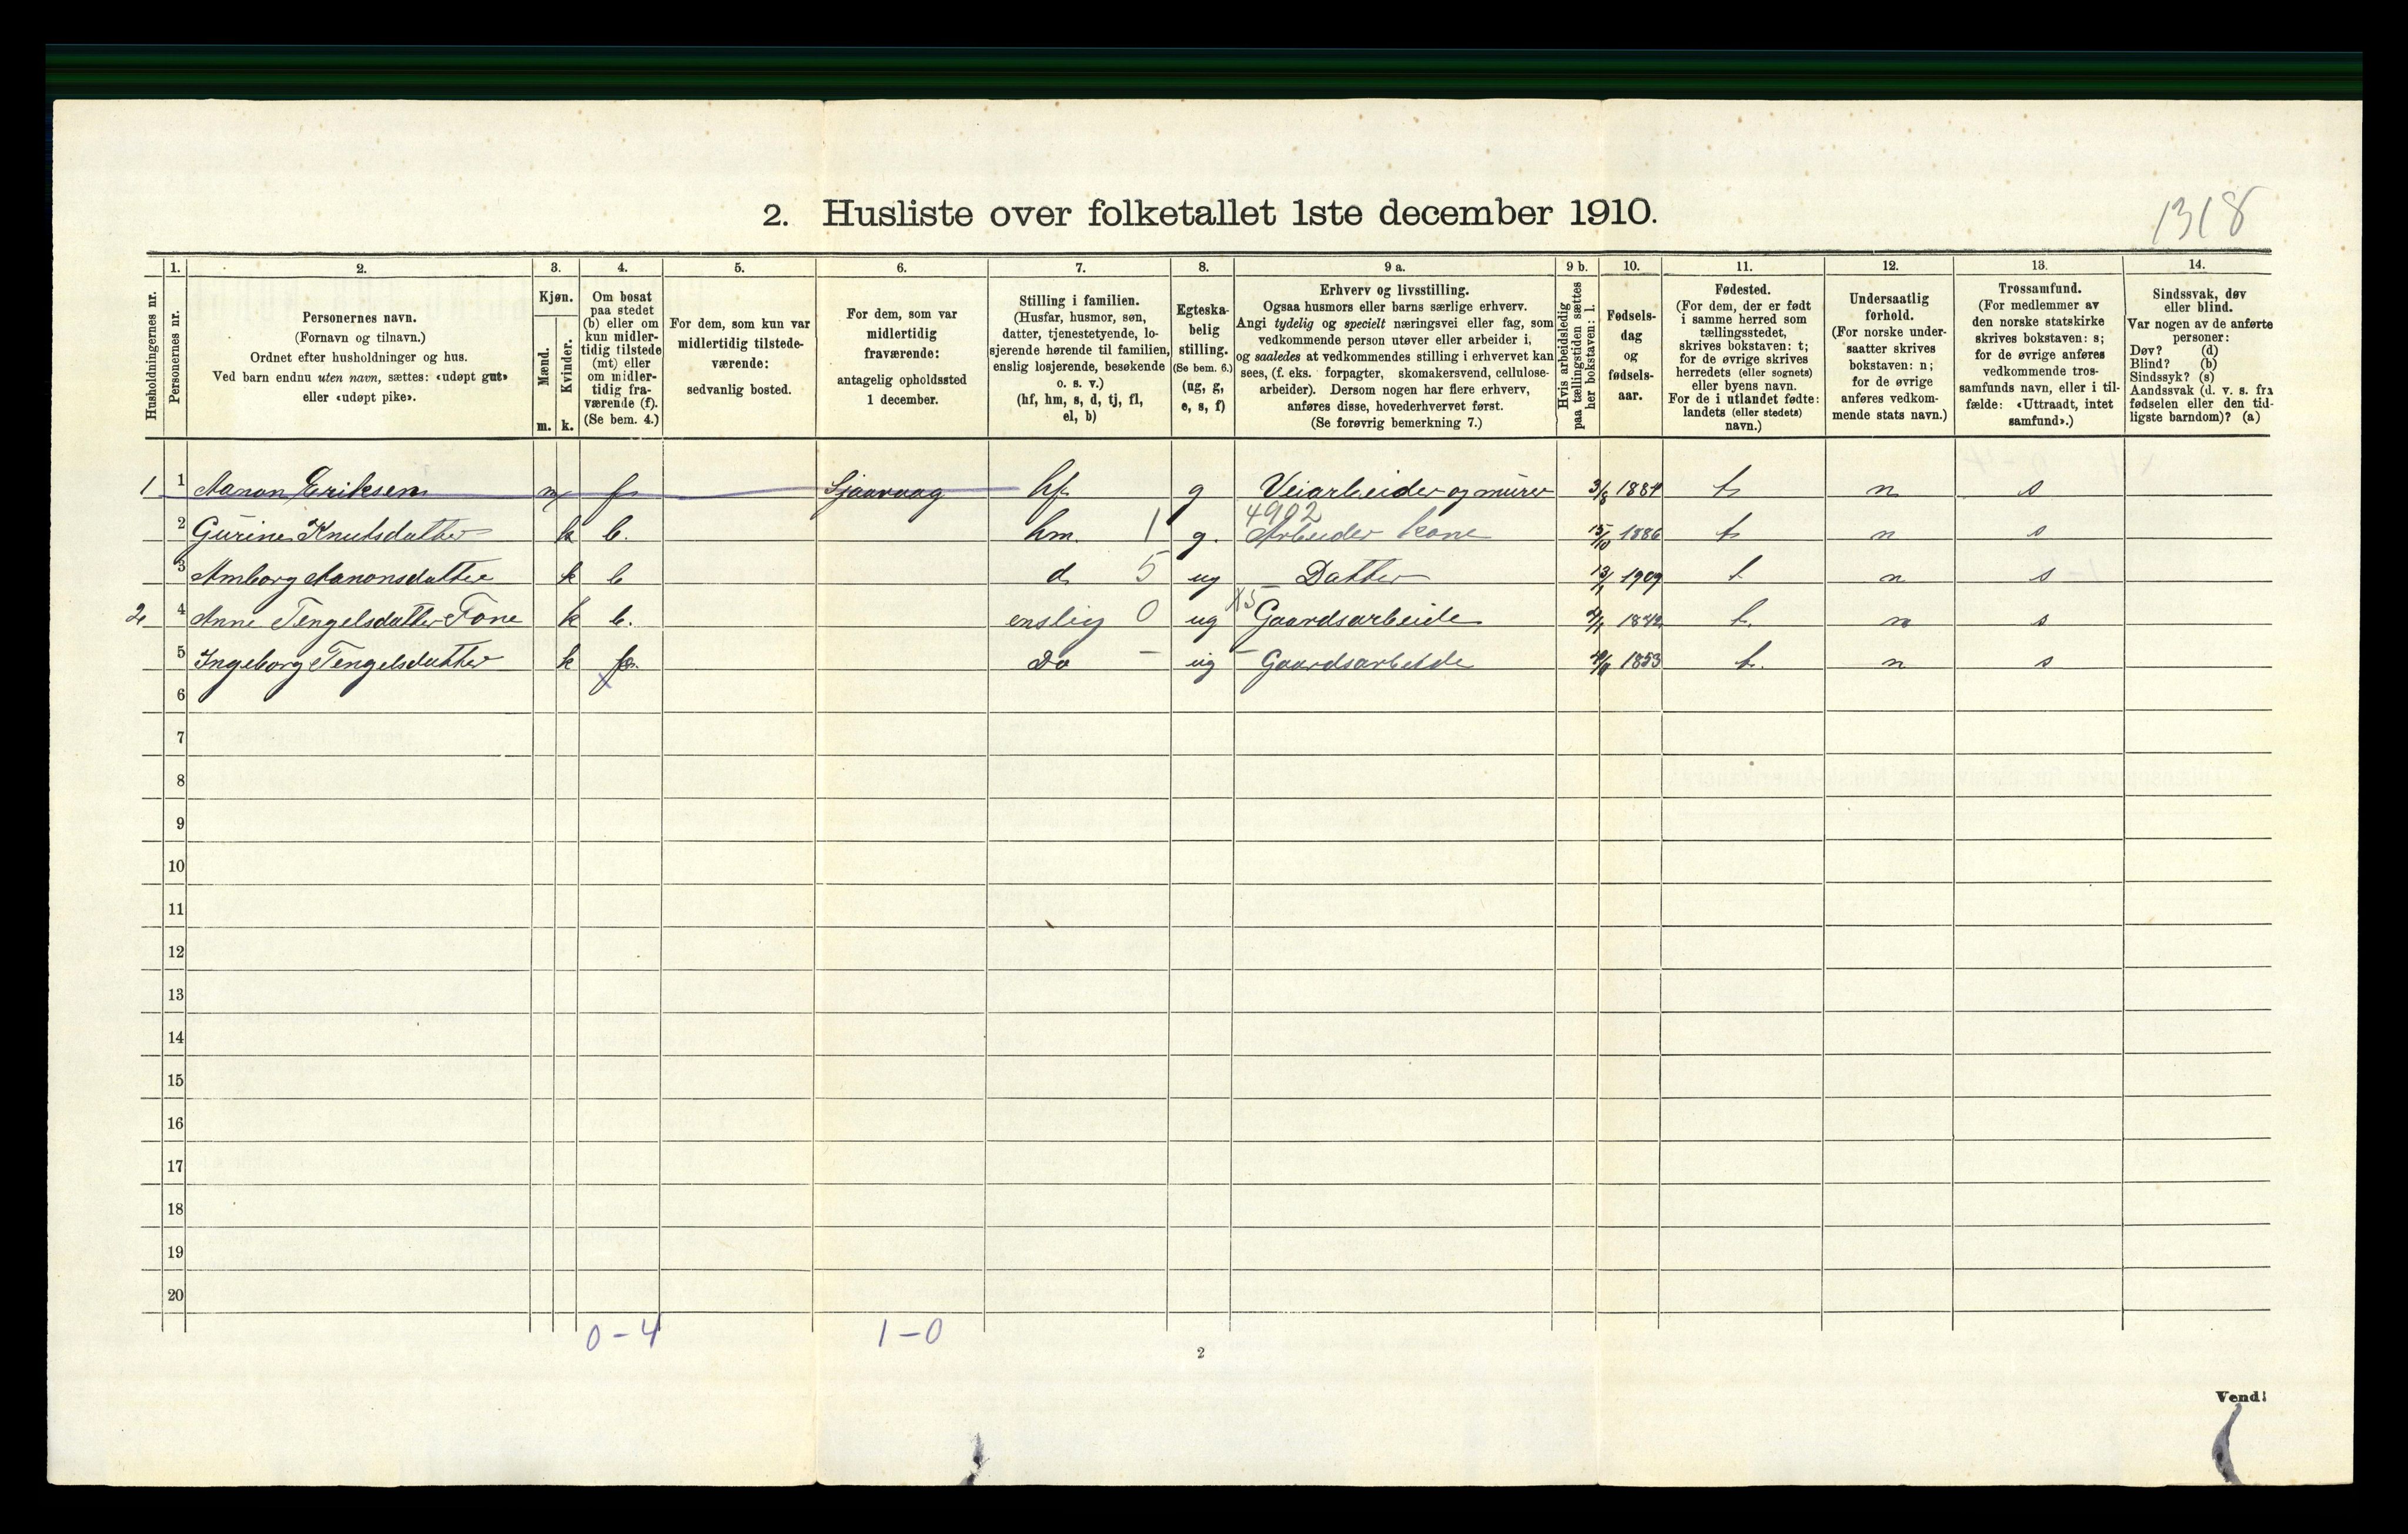 2. Husliste over folketallet 1ste december 1910.
1318
Husholdningernes nr.
1.
Personernes nr.
2.
Personernes navn.
(Fornavn og tilnavn.)
Ordnet efter husholdninger og hus.
Ved barn endnu uten navn, sættes: «udøpt gut»
eller «udøpt pike».
3.
Kjøn.
Mænd.
Kvinder.
m. k.
4.
Om bosat
paa stedet
(b) eller om
kun midler-
tidig tilstede
(mt) eller
om midler-
tidig fra-
værende (f).
(Se bem. 4.)
5.
For dem, som kun var
midlertidig tilstede-
værende:
sedvanlig bosted.
6.
For dem, som var
midlertidig
fraværende:
antagelig opholdssted
1 december.
7.
Stilling i familien.
(Husfar, husmor, søn,
datter, tjenestetyende, lo-
sjerende hørende til familien,
enslig losjerende, besøkende
o. s. v.)
(hf, hm, s, d, tj, fl,
el, b)
8.
Egteska-
belig
stilling.
(Se bem. 6.)
(ug, g,
e, s, f)
9 a.
Erhverv og livsstilling.
Ogsaa husmors eller barns særlige erhverv.
Angi tydelig og specielt næringsvei eller fag, som
vedkommende person utøver eller arbeider i,
og saaledes at vedkommendes stilling i erhvervet kan
sees, (f. eks. forpagter, skomakersvend, cellulose-
arbeider). Dersom nogen har flere erhverv,
anføres disse, hovederhvervet først.
(Se forøvrig bemerkning 7.)
9 b.
Hvis arbeidsledig
paa tællingstiden sættes
her bokstaven: l.
10.
Fødsels-
dag
og
fødsels-
aar.
11.
Fødested.
(For dem, der er født
i samme herred som
tællingsstedet,
skrives bokstaven: t;
for de øvrige skrives
herredets (eller sognets)
eller byens navn.
For de i utlandet fødte:
landets (eller stedets)
navn.)
12.
Undersaatlig
forhold.
(For norske under-
saatter skrives
bokstaven: n;
for de øvrige
anføres vedkom-
mende stats navn.)
13.
Trossamfund.
(For medlemmer av
den norske statskirke
skrives bokstaven: s;
for de øvrige anføres
vedkommende tros-
samfunds navn, eller i til-
fælde: «Uttraadt, intet
samfund».)
14.
Sindssvak, døv
eller blind.
Var nogen av de anførte
personer:
Døv? (d)
Blind? (b)
Sindssyk? (s)
Aandssvak (d. v. s. fra
fødselen eller den tid-
ligste barndom)? (a)
1 1 Aanon Eriksen m f hf g Veiarbeider og murer 3/8 1884 t n s
4902
2 Gurine Knutsdatter k b. hm. 1 g. Arbeider kone 15/10 1886 t n s
3 Amborg Aanonsdatter k b d 5 ug Datter 13/1 1909 t n s
2 4 Anne Tengelsdatter Fone k b. enslig 0 ug X5 Gaardsarbeide 1842 t. n s
5 Ingeborg Tengelsdatter k Do - ug - Gaardsarbeide 1853 t. n s
6
7
8
9
10
11
12
13
14
15
16
17
18
19
20
0 - 4 1 - 0
2
Vend!